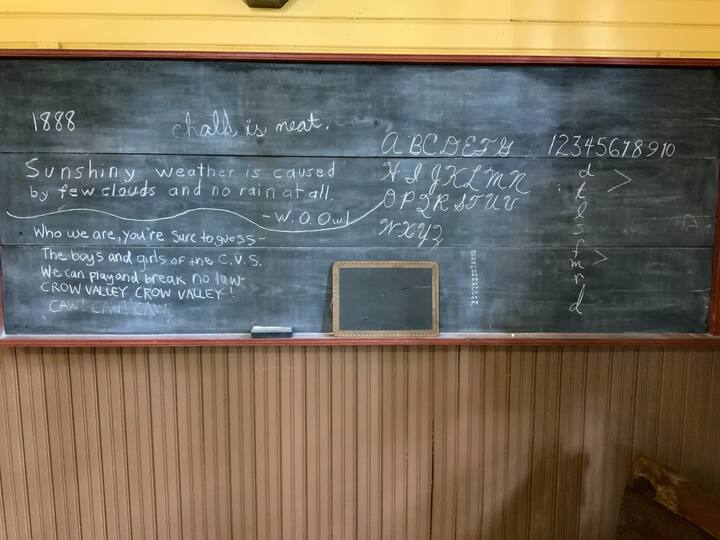 1888
chalk is neat.
Sunshiny weather is caused
by few clouds and no rain at all.
-W.O.Owl
Who we are, you're sure to guess-
The boys and girls of the C.V.S.
We can play and break no law-
CROW VALLEY CROW VALLEY!
CAW! CAW! CAW
A B C D E F G
H I J K L M N
O P Q R S T U V
W X Y Z
1 2 3 4 5 6 7 8 9 10
d
t
l
s
f
m
n
d